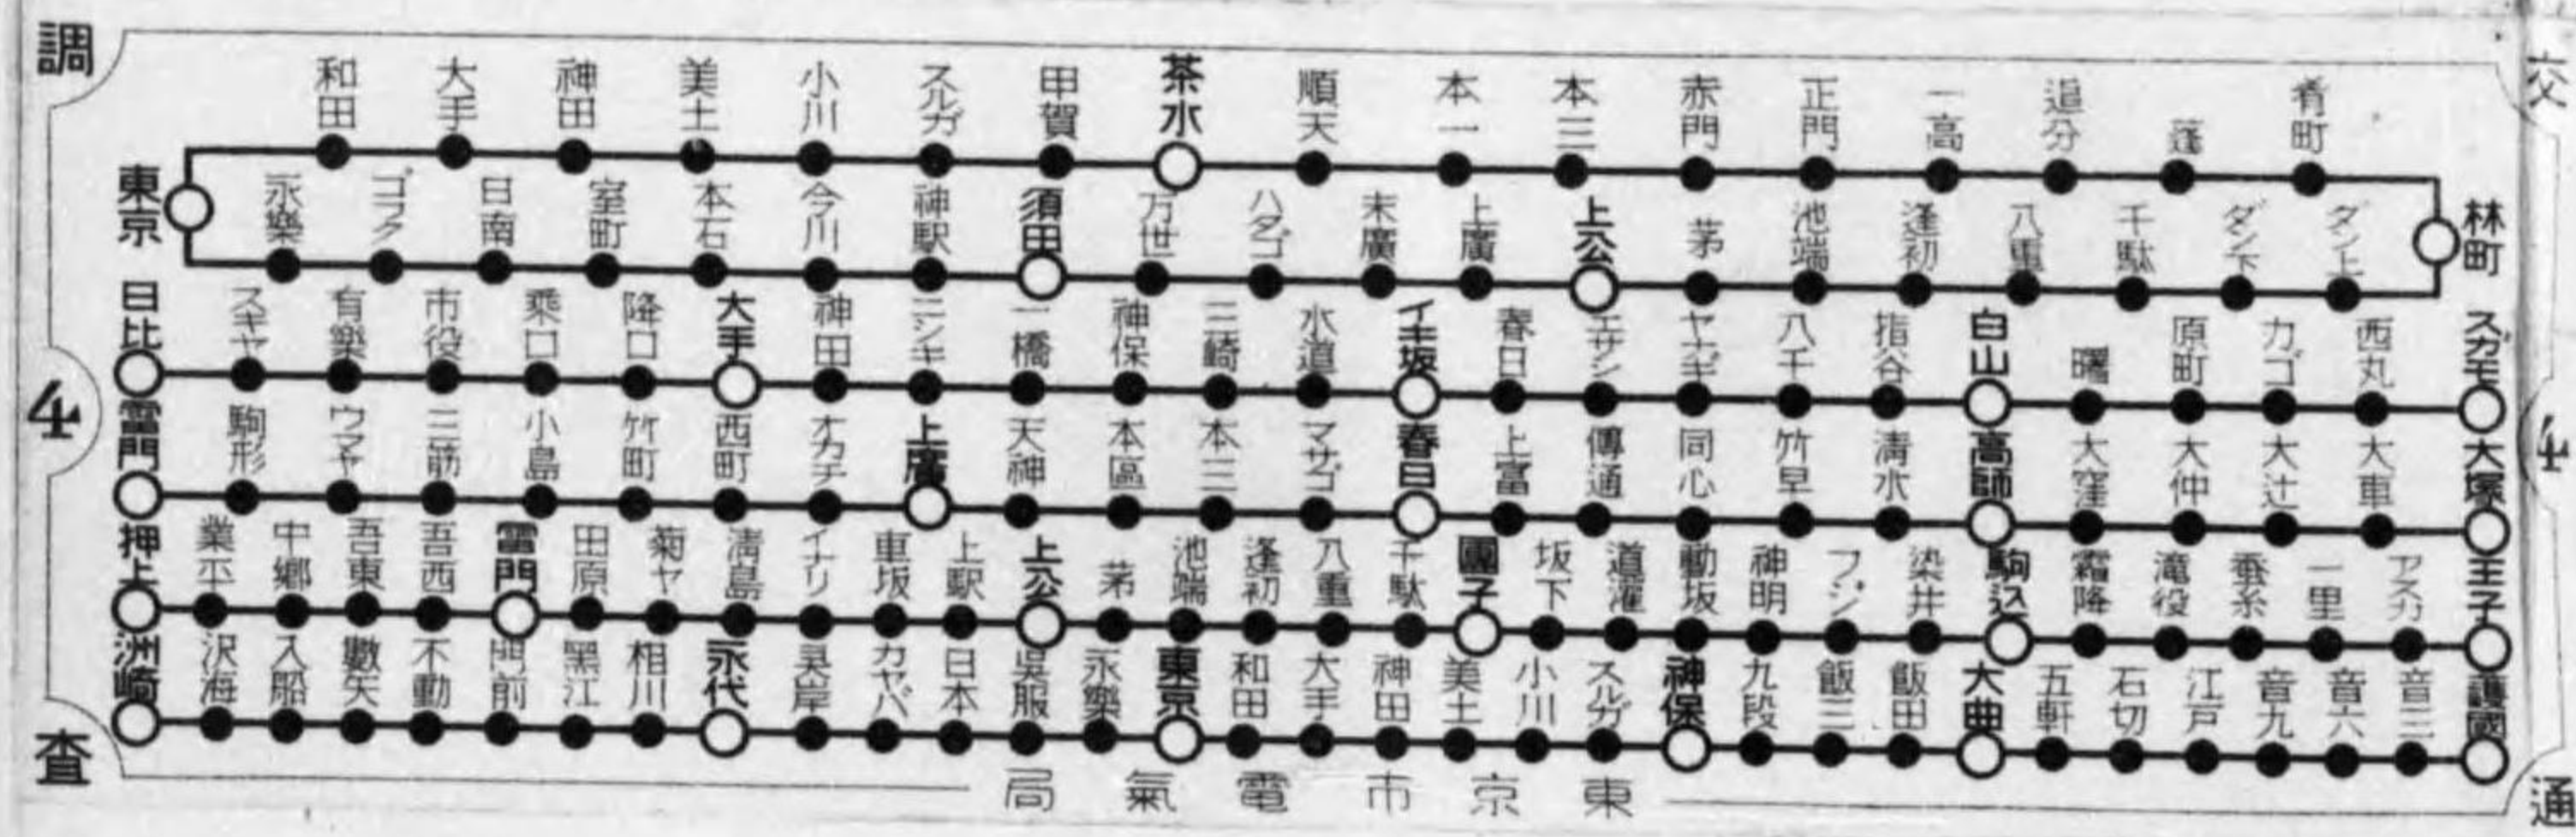 調
交
和田 大手 神田 美土 小川 スルガ 甲賀 茶水 順天 本一 本三 赤門 正門 一高 追分 蓬 肴町
東京
永樂 ゴフク 日南 室町 本石 今川 神駅 須田 万世 ハタゴ 末廣 上廣 上公 茅 池端 逢初 八重 千駄 ダン下 ダン上
林町
日比 スキヤ 有樂 市役 乘口 降口 大手 神田 ニシキ 一橋 神保 三崎 水道 イキ坂 春日 エサシ ヤナギ 八千 指谷 白山 曙 原町 カゴ 西丸 スガモ
4
4
雷門 駒形 ウマヤ 三筋 小島 竹町 西町 オカチ 上廣 天神 本區 本三 マサゴ 春日 上富 傳通 同心 竹早 清水 高師 大窪 大仲 大辻 大車 大塚
押上 業平 中郷 吾東 吾西 雷門 田原 菊ヤ 清島 イナリ 車坂 上駅 上公 茅 池端 逢初 八重 千駄 團子 坂下 道灌 動坂 神明 フジ 染井 駒込 霜降 滝役 蚕糸 一里 アスカ 王子
洲崎 沢海 入船 數矢 不動 門前 黒江 相川 永代 灵岸 カヤバ 日本 呉服 永樂 東京 和田 大手 神田 美土 小川 スルガ 神保 九段 飯三 飯田 大曲 五軒 石切 江戸 音九 音六 音三 護國
査
局氣電市京東
通